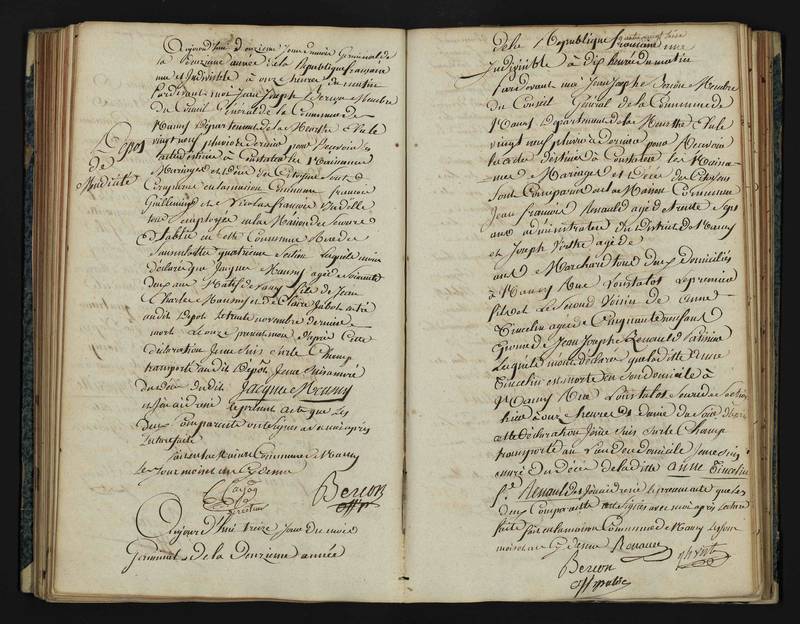 Aujourd'hui douzieme jour du mois Germinal de
la Deuzieme année de la République française
une et Indivisible à onze heures du matin
Pardevant moi Jean Joseph Berson Membre
du Conseil Général de la Commune de
Nancy Département de la Meurthe Elu le
vingt neuf pluviose dernier pour Recevoir les
actes destinés à Constater les Naissances
Mariages et Décès des Citoyens sont
Comparus en la maison Commune françois
Guillemin et Nicolas françois
tous employés en la Maison de secours
Etablie en cette Commune Rue de
quatrieme Section Lesquels m'ont
déclaré que Jacques Mouny agé de soixante
deux ans Natif de fils de Jean
Charles et de Claire entré
audit Depot le trente novembre dernier
mort Le onze présent mois D'après Cette
déclaration Je me suis sur le Champ
transporté audit Depôt Je me suis assuré
du décès dudit Jacque Mouny
et J'en ai rédigé le présent acte que Les
deux Comparants ont signés avec moi après
Lecture faite
fait en la Maison Commune de Nancy
Les Jour mois et an Cy dessus
Depot
de
Mendicité
Berson
off p
Aujourd'hui treize Jour du mois
Germinal de la Deuzieme année
de la République française une
Indivisible à dix heures du matin
Pardevant moi Jean Joseph Berson Membre
du Conseil Général de la Commune de
Nancy Département de la Meurthe Elu le
vingt neuf pluviose dernier pour Recevoir
les actes destinés à Constater les Naissan-
ces Mariages et Décès des Citoyens
sont Comparus en la Maison Commune
Jean françois Renauld agé de trente sept
ans administrateur du District de Nancy
et Joseph agé de
ans Marchand tous deux domiciliés
à Nancy Rue Le premier
fils et Le second Voisin de Anne
Tincelin agée de Cinquante neuf ans
Epouse de Jean Joseph Renauld
Lesquels m'ont déclaré que laditte Anne
Tincelin est morte en son domicile à
Nancy Rue
hier à onze heures du soir D'après
cette déclaration Je me suis sur le Champ
transporté au lieu du domicile Je me suis
assuré du Décès de laditte anne Tincelin
fe Renauld et J'en ai rédigé le présent acte que Les
deux Comparants ont signés avec moi après Lecture
faite fait en la maison Commune de Nancy Les Jour
mois et an Cy dessus Renauld
Berson
off public